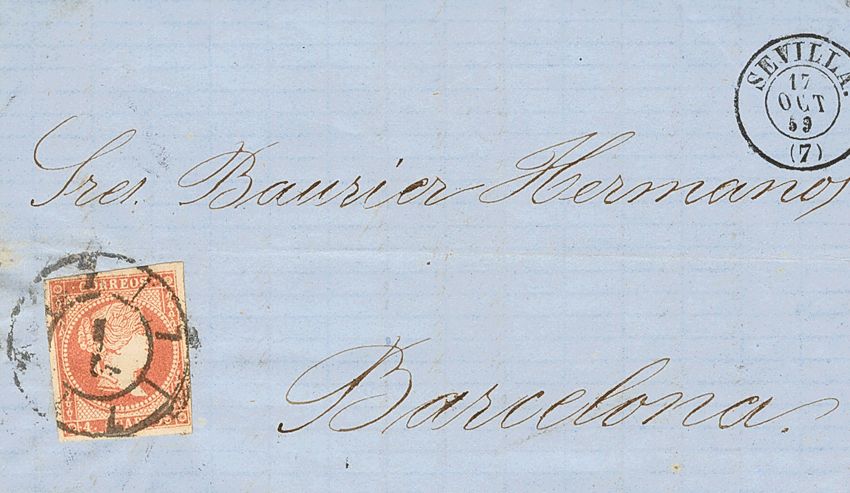 SEVILLA.
17
OCT
59
(7)
Sres. Baurier Hermanos
CORREOS
Barcelona.